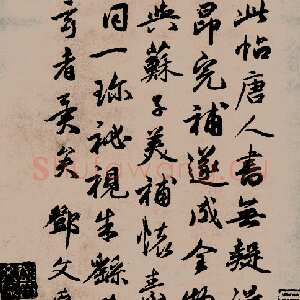 此帖唐人書無疑
昂完補遂成全
與蘇子美補懷素
同一珍祕視朱繇
者異矣鄧文